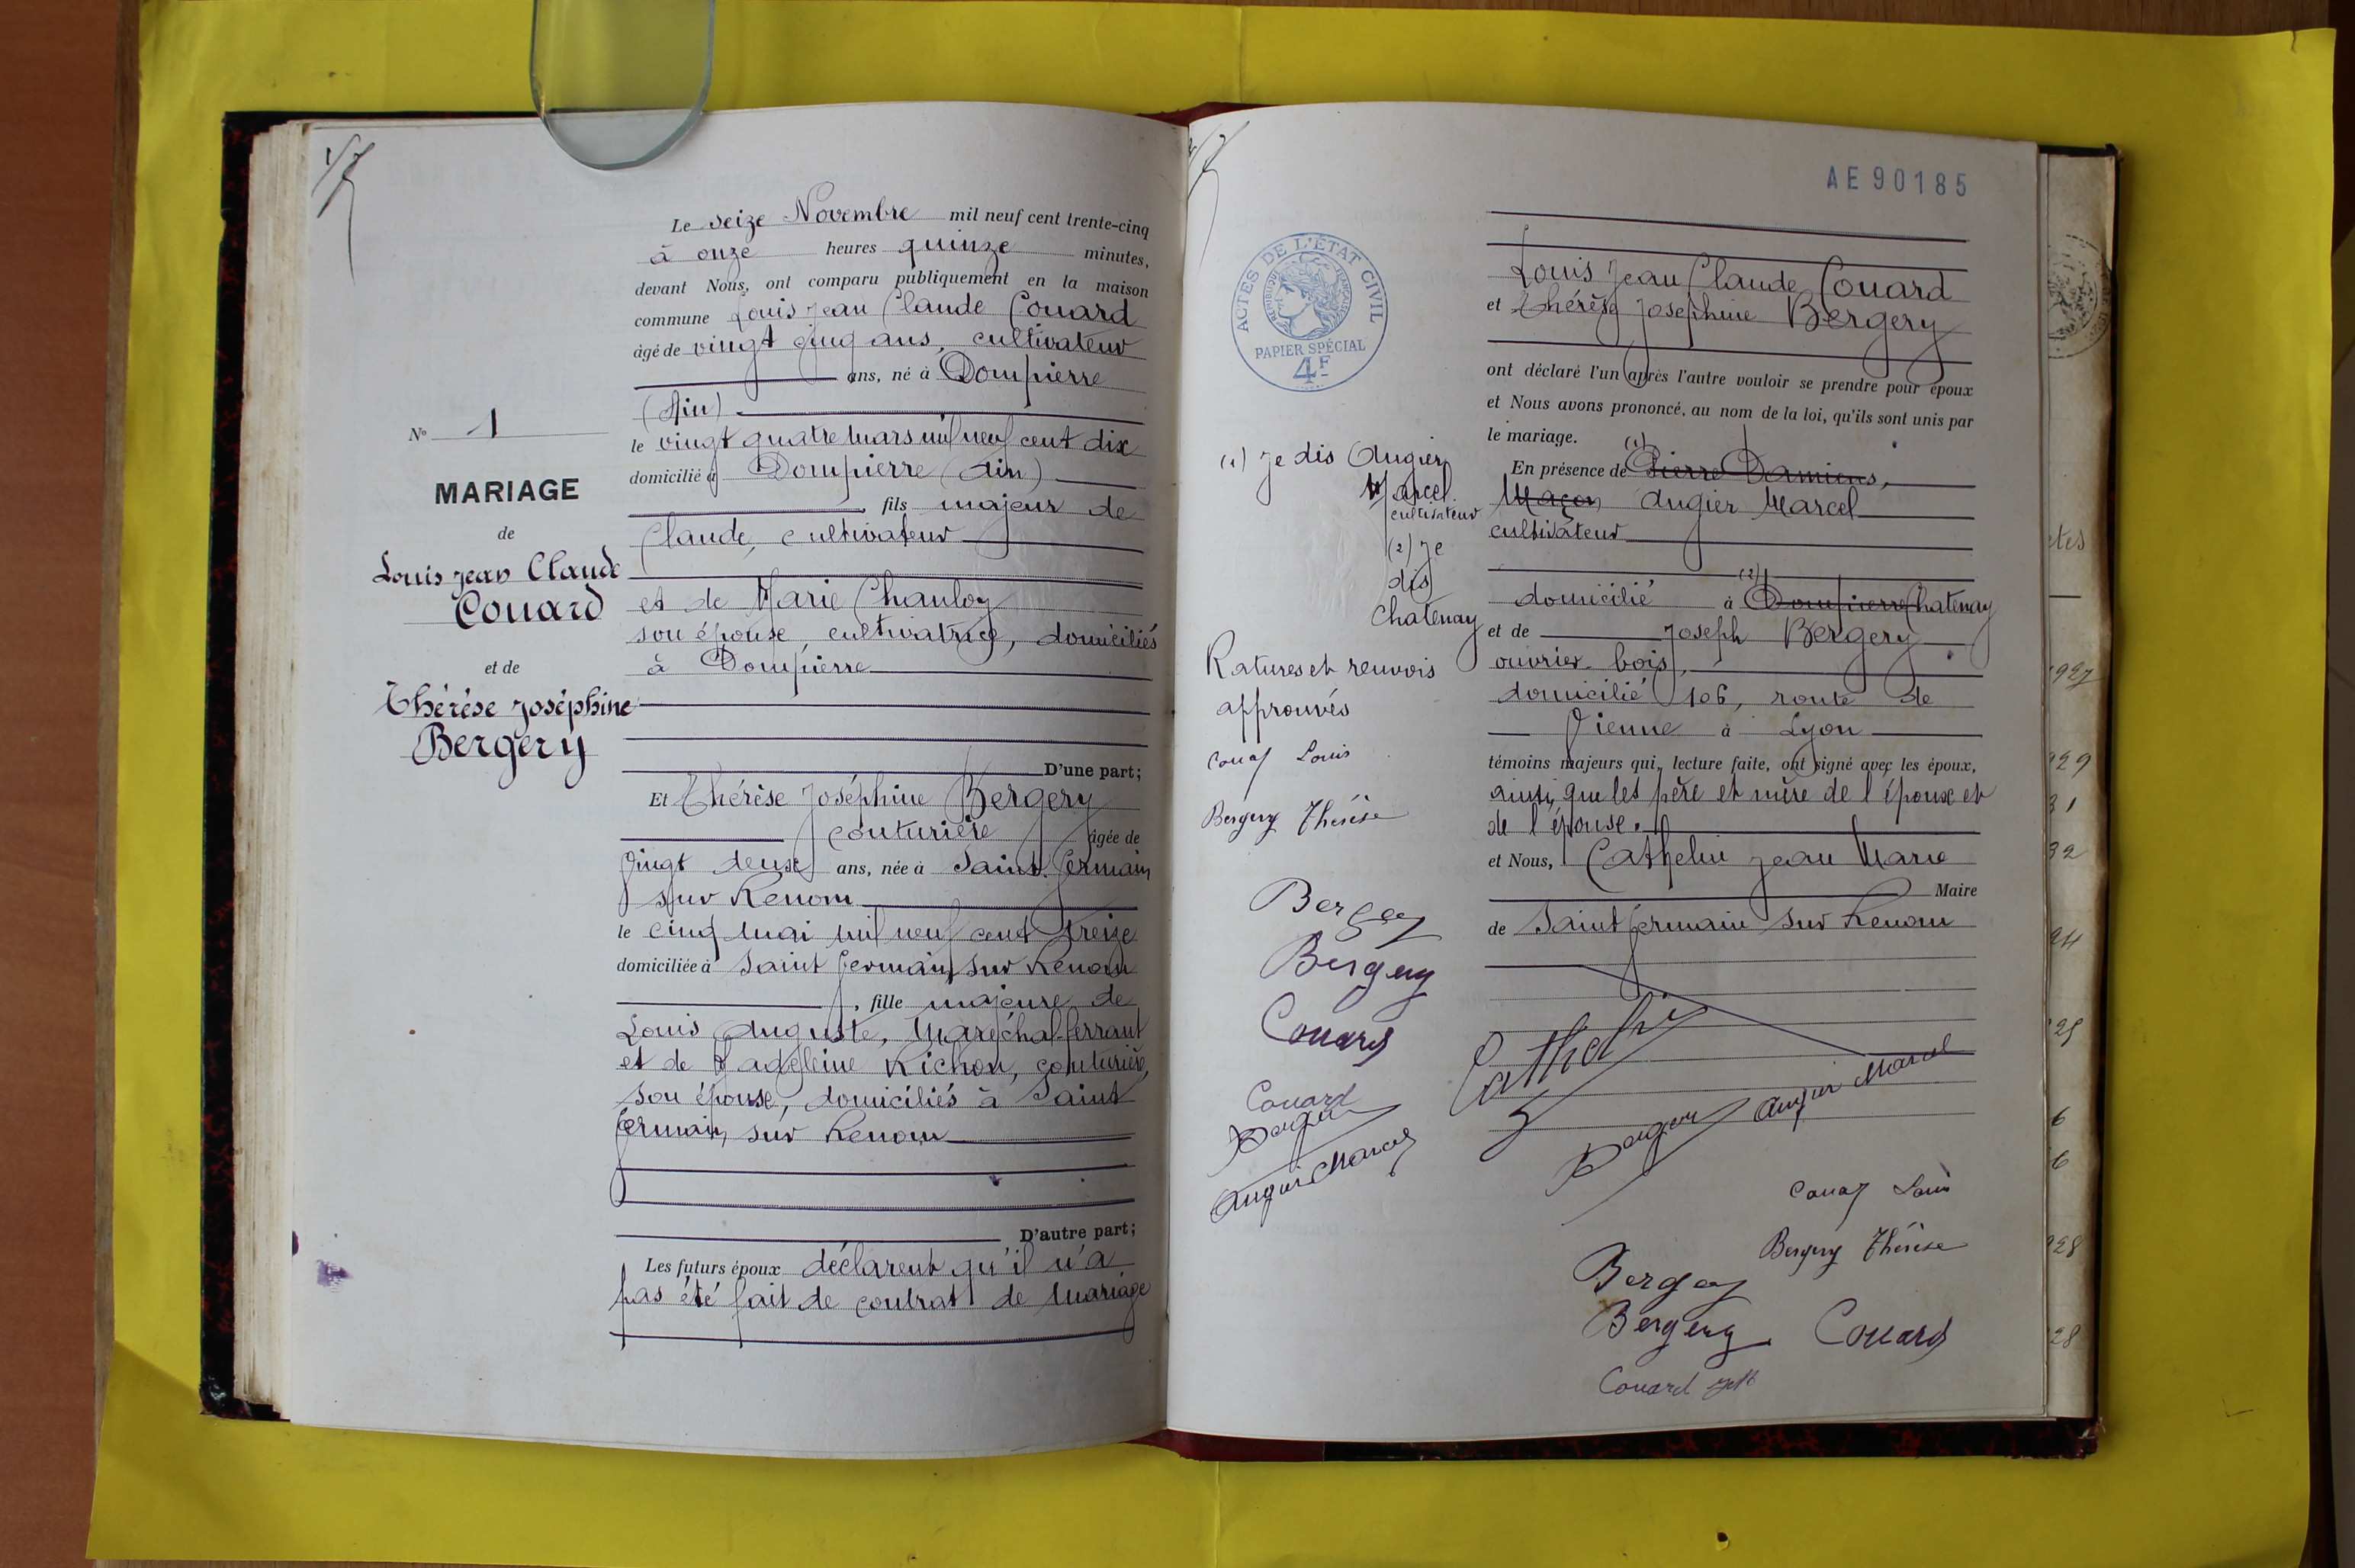 Le seize Novembre mil neuf cent trente-cinq
à onze heures quinze minutes,
devant Nous, ont comparu publiquement en la maison
commune Louis Jean Claude Couard
âgé de vingt cinq ans, cultivateur
ans, né à Dompierre
(Ain)
le vingt quatre mars mil neuf cent dix
domicilié à Dompierre (Ain)
, fils majeur de
Claude, cultivateur
et de Marie Chanloy
son épouse, cultivatrice, domiciliés
à Dompierre
D'une part;
Et Thérèse Joséphine Bergery
couturière âgée de
vingt deux ans, née à Saint Germain
sur Renom
le cinq mai mil neuf cent treize
domiciliée à Saint Germain sur Renom
, fille majeure de
Louis Auguste, Maréchal-ferrant
et de Madeleine Richon, couturière,
son épouse, domiciliés à Saint
Germain sur Renom
D'autre part;
Les futurs époux déclarent qu'il n'a
pas été fait de contrat de mariage
N° 1
MARIAGE
de
Louis Jean Claude
Couard
et de
Thérèse Joséphine
Bergery
AE 90185
ACTES DE L'ÉTAT CIVIL
RÉPUBLIQUE FRANÇAISE
PAPIER SPÉCIAL
4F
Louis Jean Claude Couard
et Thérèse Josephine Bergery
ont déclaré l'un après l'autre vouloir se prendre pour époux
et Nous avons prononcé, au nom de la loi, qu'ils sont unis par
le mariage.
(1)
En présence de Pierre Damiens,
Maçon Augier Marcel
cultivateur
(2)
domicilié à Dompierre Chatenay
et de Joseph Bergery
ouvrier bois,
domicilié 106, route de
Vienne à Lyon
témoins majeurs qui, lecture faite, ont signé avec les époux,
ainsi que les père et mère de l'époux et
de l'épouse.
et Nous, Cathelin Jean Marie
Maire
de Saint Germain sur Renom
Augier Marcel
Bergery Thérèse
Bergery
Bergery Couard
Couard
(1) je dis Augier
Marcel
cultivateur
(2) je
dis
Chatenay
Ratures et renvois
approuvés
Louis
Bergery Thérèse
Bergery
Bergery
Couard
Couard
Augier Marcel
1927